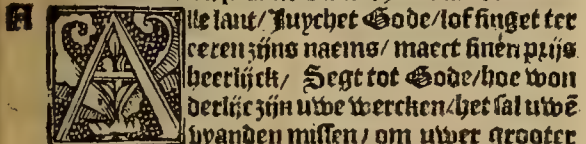 A Alle lant/ Juychet Gode/lof singet ter
eeren zijns naems/ maect sinen prijs
heerlijck/ Segt tot Gode/hoe won
derlijc zijn uwe wercken/het sal uwē
vyanden missen/ om uwer grooter